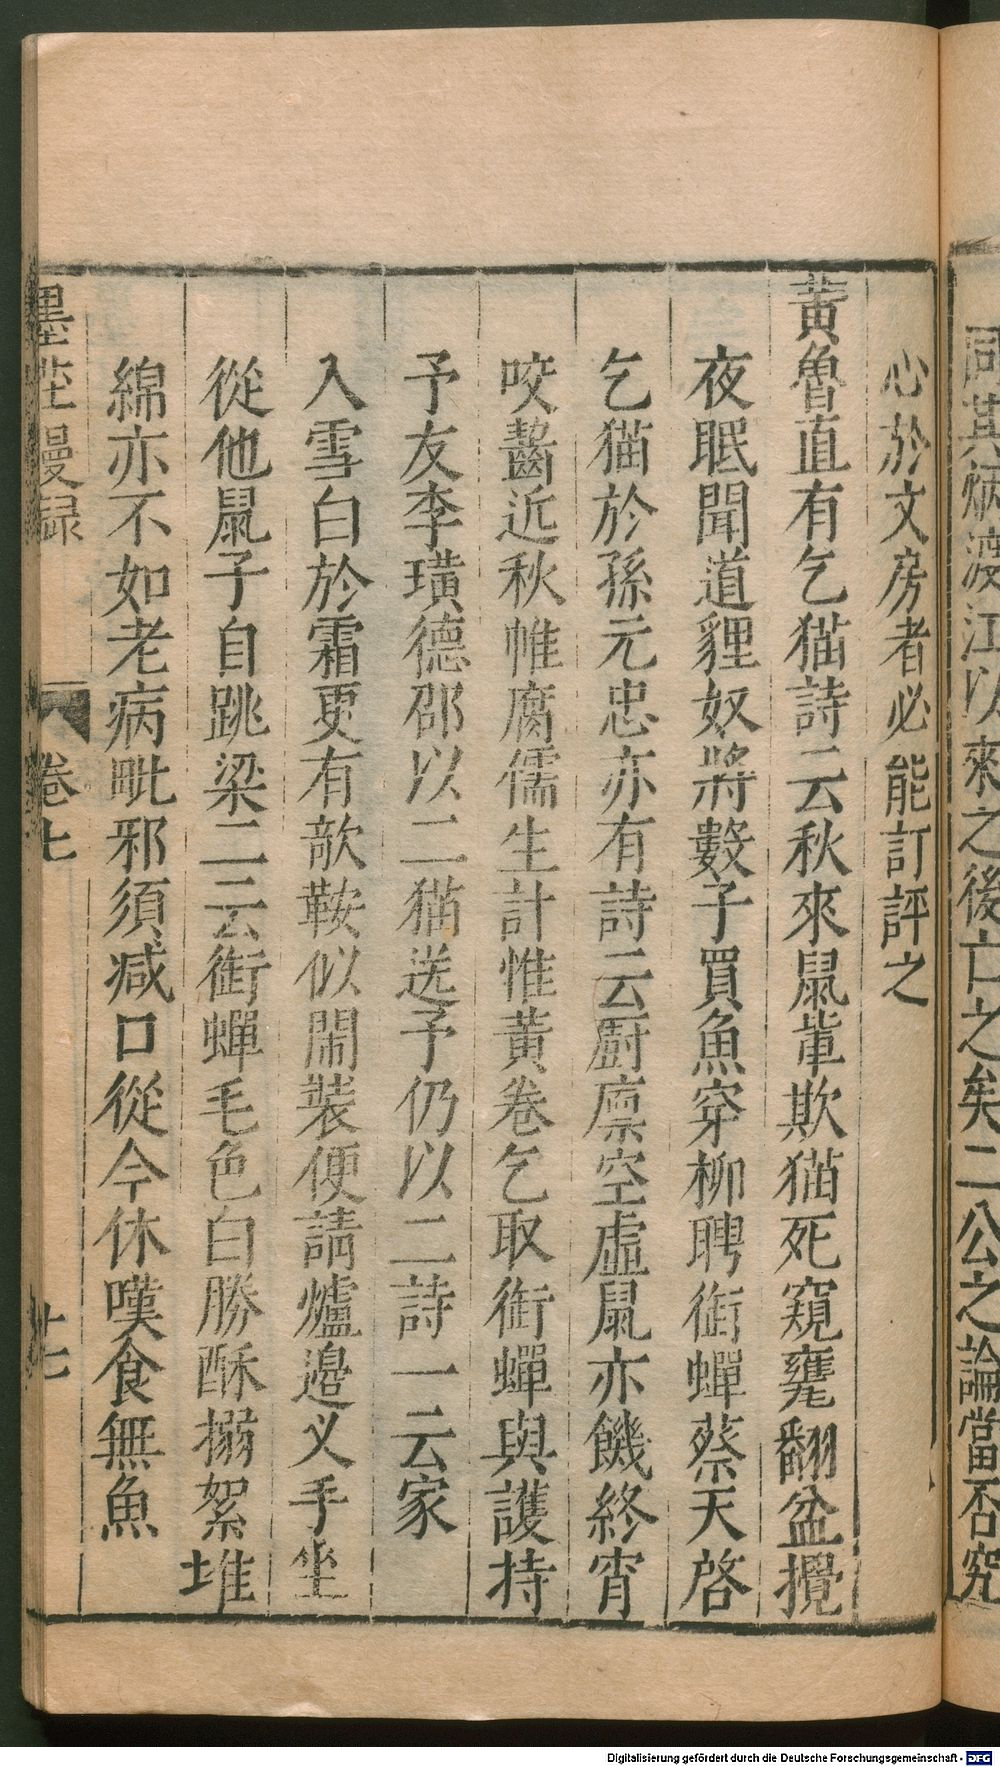 同其炳渡江以來之後亡之矣二公之論當否究
心於文房者必能訂評之
黃魯直有乞猫詩云秋來鼠輩欺猫死窺甕翻盆攪
夜眠聞道貍奴將數子買魚穿柳聘銜蟬蔡天啓
乞猫於孫元忠亦有詩云厨廪空虛鼠亦饑終宵
咬齧近秋帷腐儒生計惟黃卷乞取銜蟬與護持
予友李璜德邵以二猫送予仍以二詩一云家
入雪白於霜更有欹鞍似閙裝便請爐邉义手坐
從他鼠子自跳梁二云銜蟬毛色白勝酥搦絮堆
綿亦不如老病毗邪須减口從今休嘆食無魚
墨莊漫録 卷七 廿七
Digitalisierung gefördert durch die Deutsche Forschungsgemeinschaft - DFG